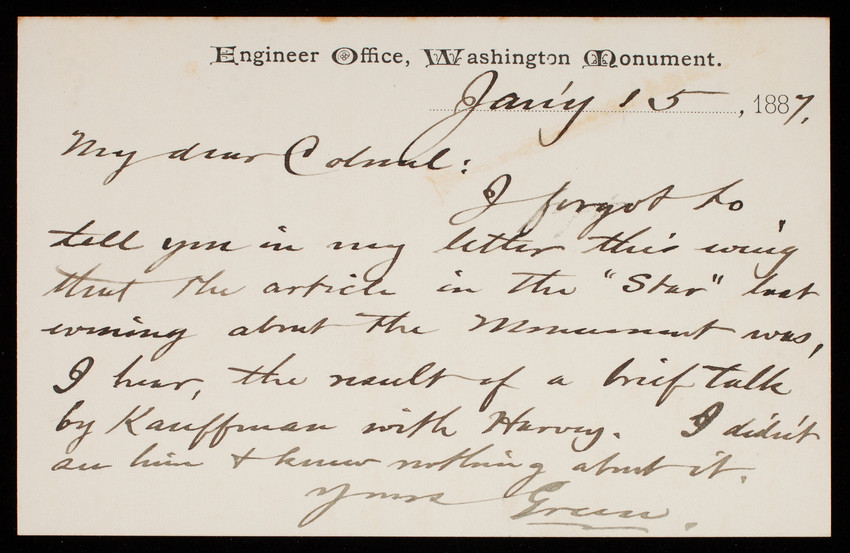 Engineer Office, Washington Monument.
Jan'y 15, 1887,
My dear Colonel:
I forgot to
tell you in my letter this eve'g
that the article in the "Star" last
evening about the Monument was,
I hear, the result of a brief talk
by Kauffman with Harvey. I didn't
see him & knew nothing about it.
Yours Green.